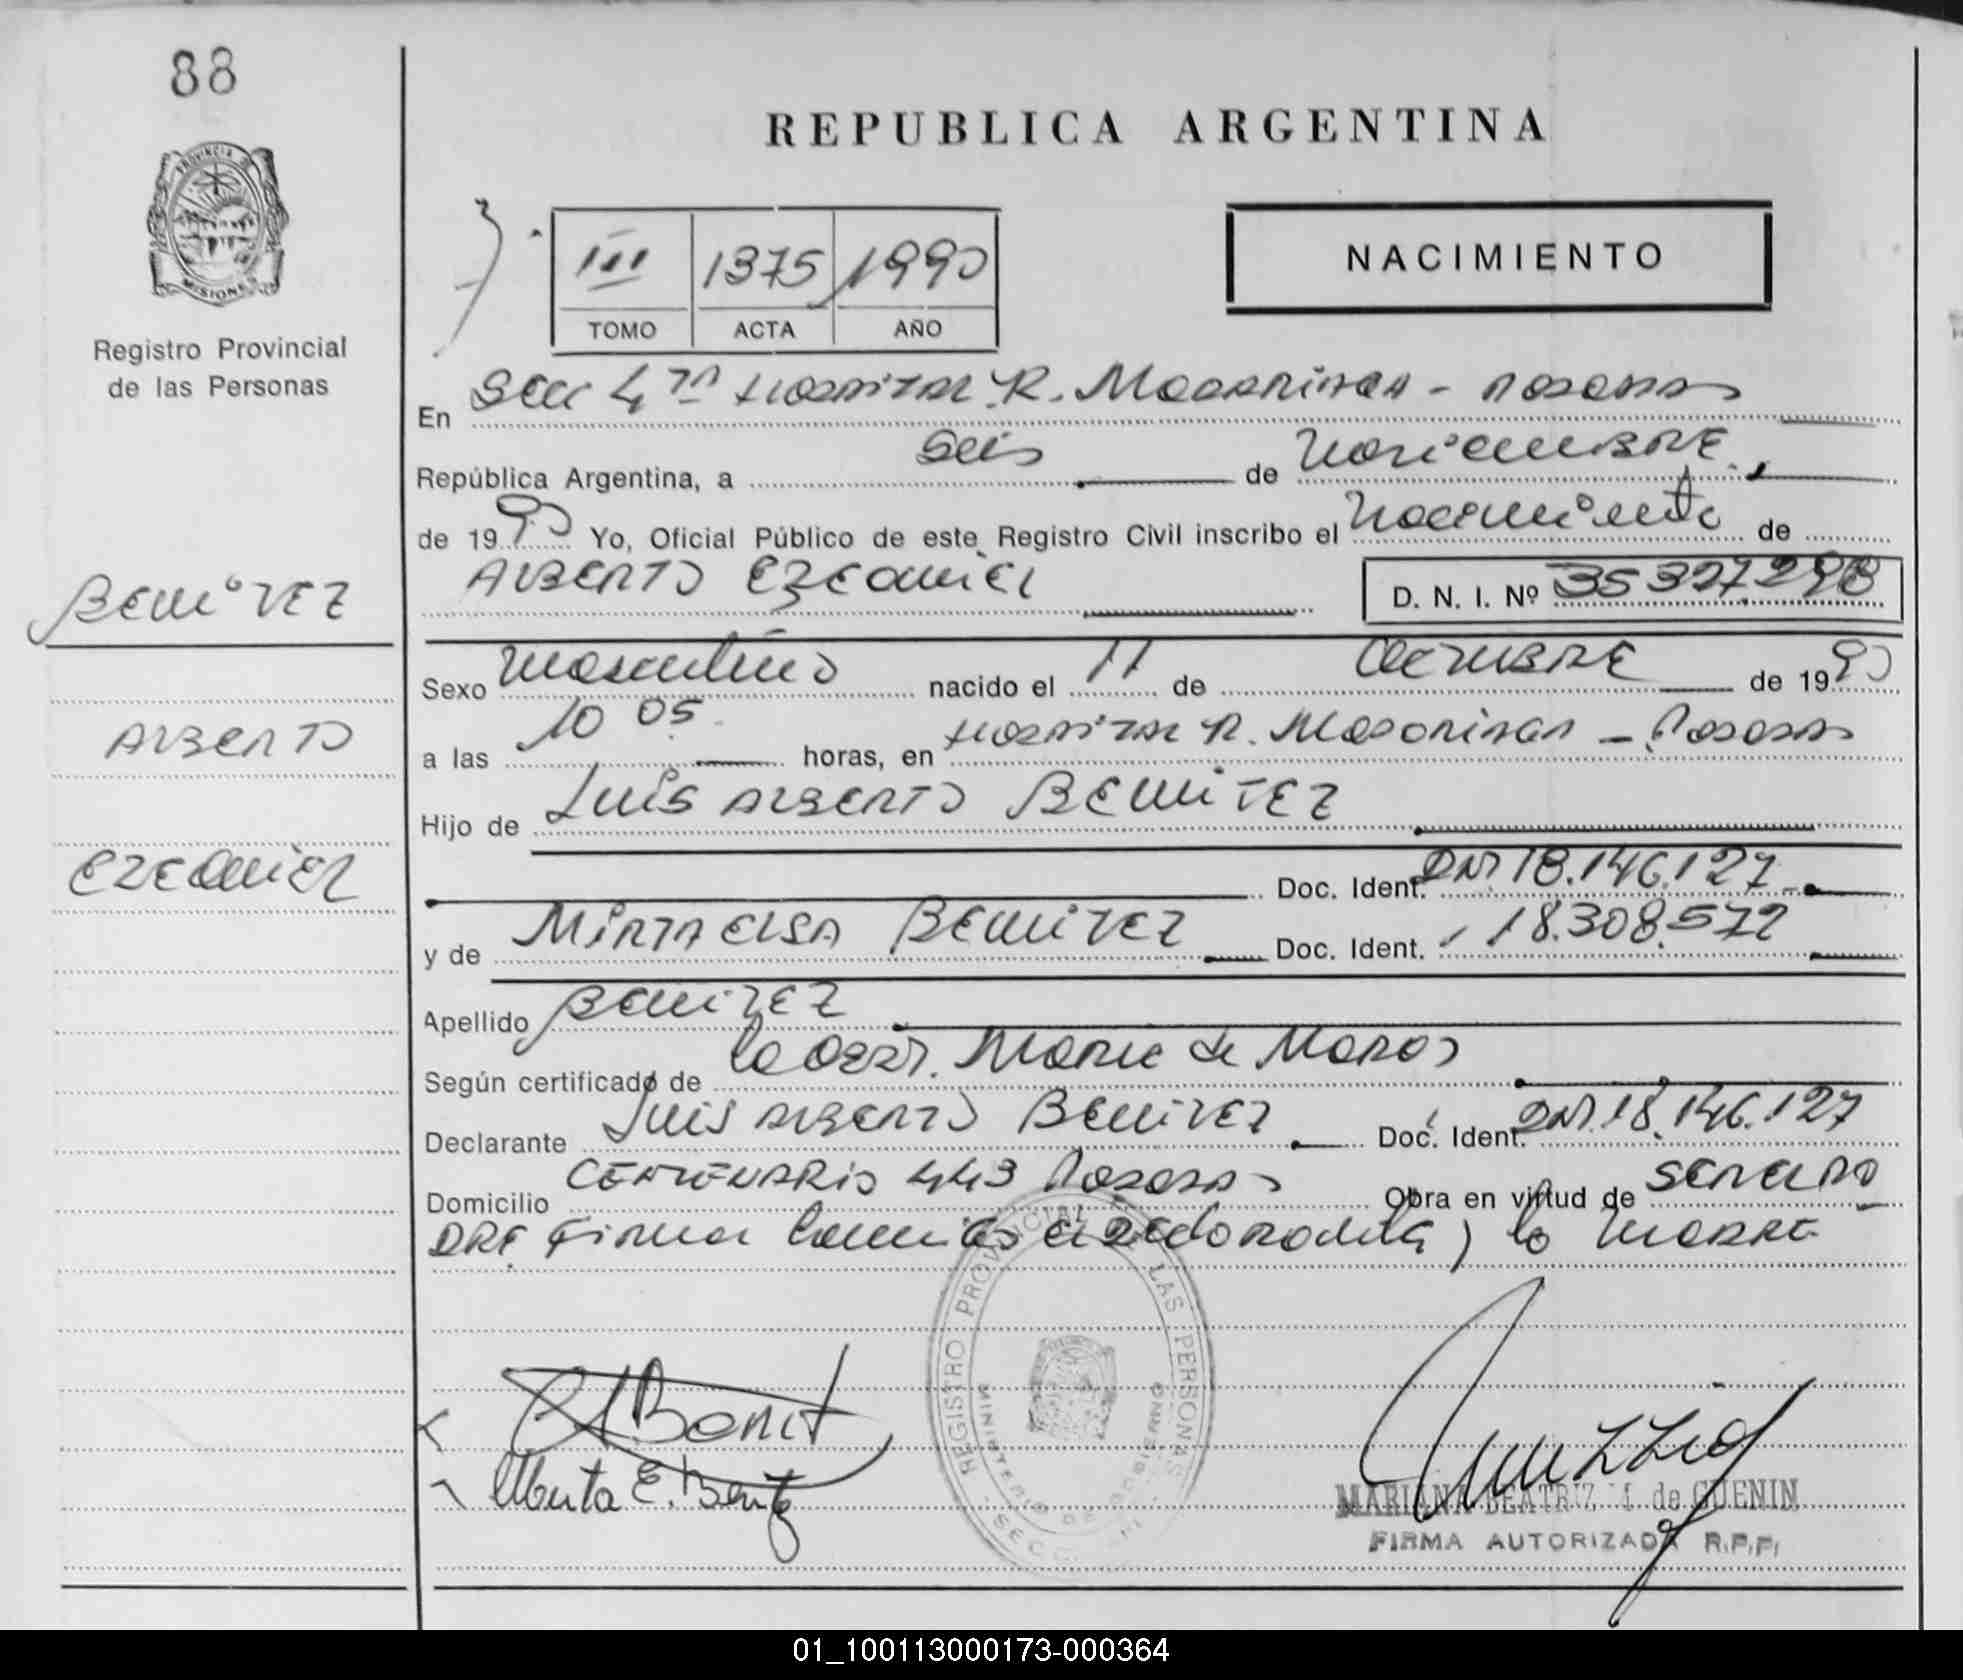 88
REPUBLICA ARGENTINA
PROVINCIA DE
MISIONES
Registro Provincial
de las Personas
III 1375 1990
TOMO ACTA AÑO
NACIMIENTO
En Secc 4ta Hospital R. Madariaga - Posadas
República Argentina, a seis de Noviembre
de 1990 Yo, Oficial Público de este Registro Civil inscribo el Nacimiento de
ALBERTO EZEQUIEL D. N. I. Nº 35327298
BENITEZ
ALBERTO
EZEQUIEL
Sexo Masculino nacido el 11 de OCTUBRE de 1990
a las 10 05 horas, en Hospital R. Madariaga - Posadas
Hijo de Luis ALBERTO BENITEZ
Doc. Ident. DNI 18.146.127
y de MIRTA ELSA BENITEZ Doc. Ident. 18.308.572
Apellido BENITEZ
Según certificado de la Obst. Marie de
Declarante Luis ALBERTO BENITEZ Doc. Ident. DNI 18.146.127
Domicilio CENTENARIO 443 Posadas Obra en virtud de
firma el la MADRE
REGISTRO PROVINCIAL DE LAS PERSONAS
MINISTERIO DE GOBIERNO
SECC
MARIANA BEATRIZ de GUENIN
FIRMA AUTORIZADA R.P.P.
01_100113000173-000364